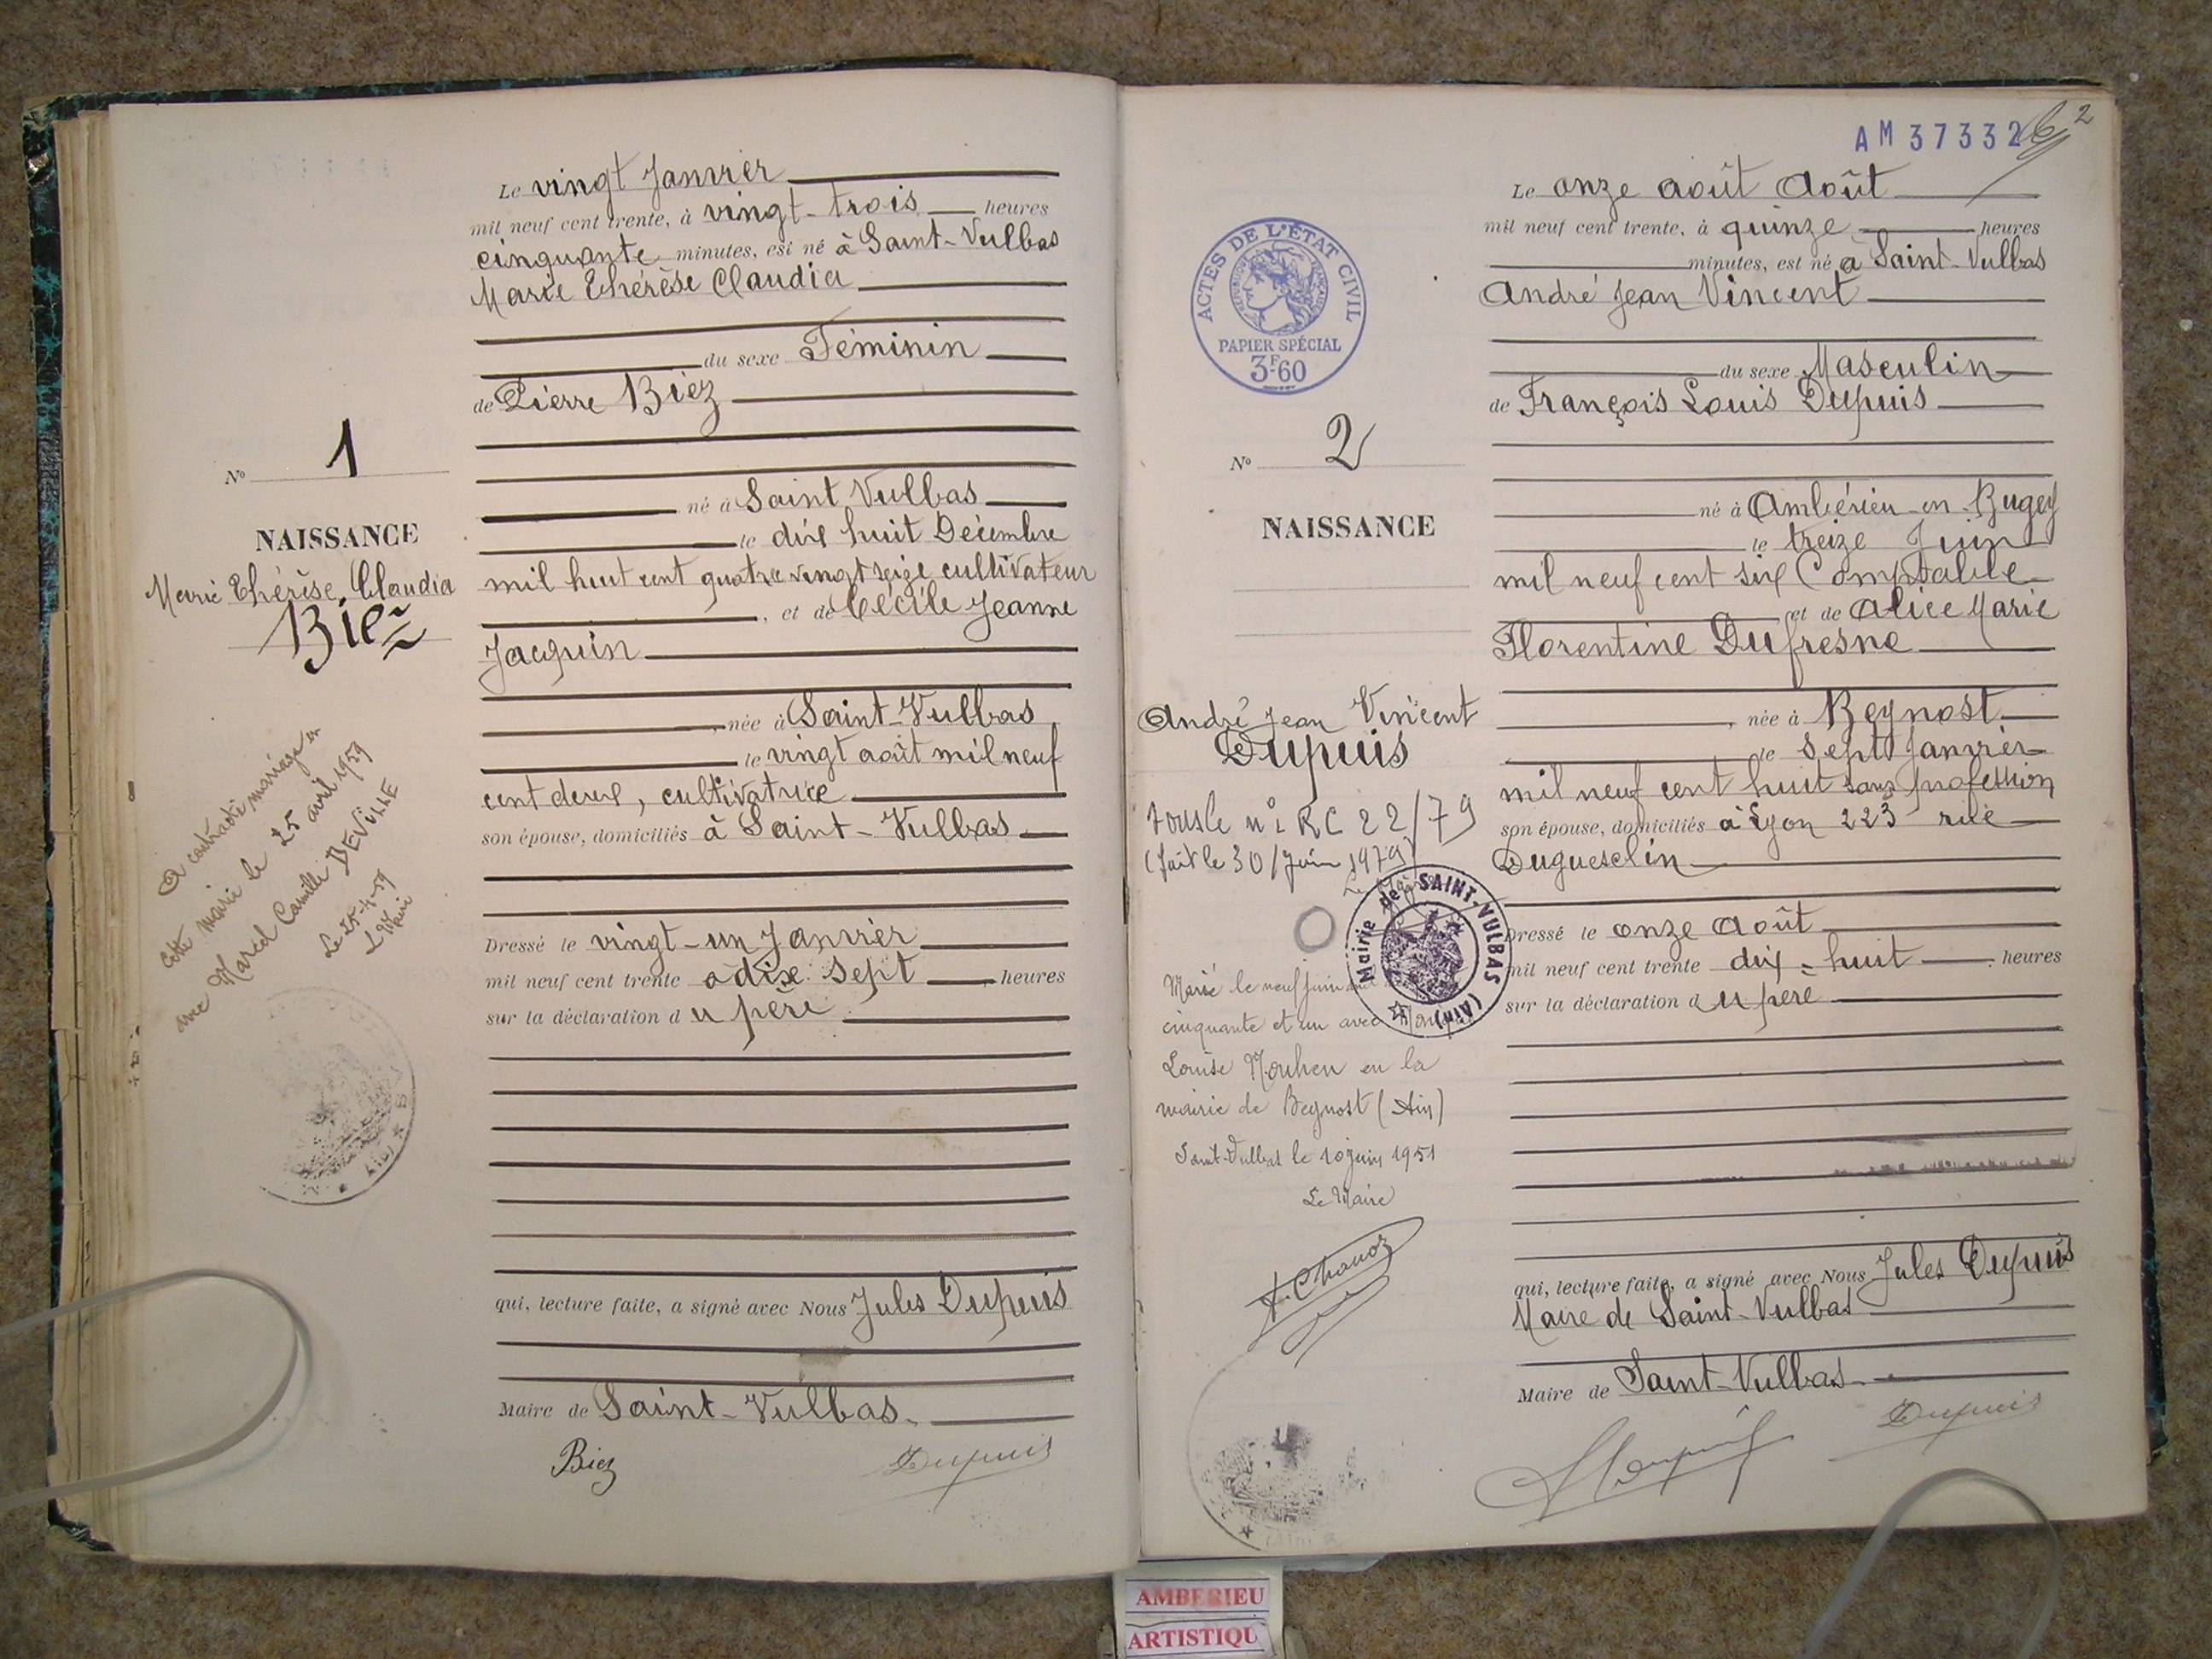 Le vingt Janvier
mil neuf cent trente, à vingt-trois heures
cinquante minutes, est né à Saint-Vulbas
Marie Thérèse Claudia
du sexe Féminin
de Pierre Biez
né à Saint Vulbas
le dix huit Décembre
mil huit cent quatre vingt seize cultivateur
, et de Cécile Jeanne
Jacquin
, née à Saint-Vulbas,
le vingt août mil neuf
cent deux, cultivatrice
son épouse, domiciliés à Saint-Vulbas
Dressé le vingt-un Janvier
mil neuf cent trente à dix sept heures
sur la déclaration du père
qui, lecture faite, a signé avec Nous Jules Dupuis
Maire de Saint-Vulbas.
Biez
Dupuis
No 1
NAISSANCE
Marie Thérèse Claudia
Biez
A contracté mariage en
cette mairie le 25 avril 1959
avec Marcel Camille DEVILLE
Le 25-4-59
Le Maire
AM 37332
2
ACTES DE L'ÉTAT CIVIL
RÉPUBLIQUE FRANÇAISE
PAPIER SPÉCIAL
3F60
No 2
NAISSANCE
André Jean Vincent
Dupuis
n° RC 22/79
(fait le 30/juin 1979)
Le Maire
Mairie de SAINT-VULBAS (Ain)
Marié le neuf juin mil
cinquante et un avec
Louise Mouhen en la
mairie de Beynost (Ain)
Saint-Vulbas le 10 juin 1951
Le Maire
Chanoz
Le onze août Août
mil neuf cent trente, à quinze heures
minutes, est né à Saint-Vulbas
André Jean Vincent
du sexe Masculin
de François Louis Dupuis
né à Ambérieu-en-Bugey
le treize Juin
mil neuf cent six Comptable
et de Alice Marie
Florentine Dufresne
, née à Beynost
le sept Janvier
mil neuf cent huit sans profession
son épouse, domiciliés à Lyon 223 rue
Duguesclin
Dressé le onze Août
mil neuf cent trente dix-huit heures
sur la déclaration du père
qui, lecture faite, a signé avec Nous Jules Dupuis
Maire de Saint-Vulbas
Maire de Saint-Vulbas
Dupuis
AMBERIEU
ARTISTIQU